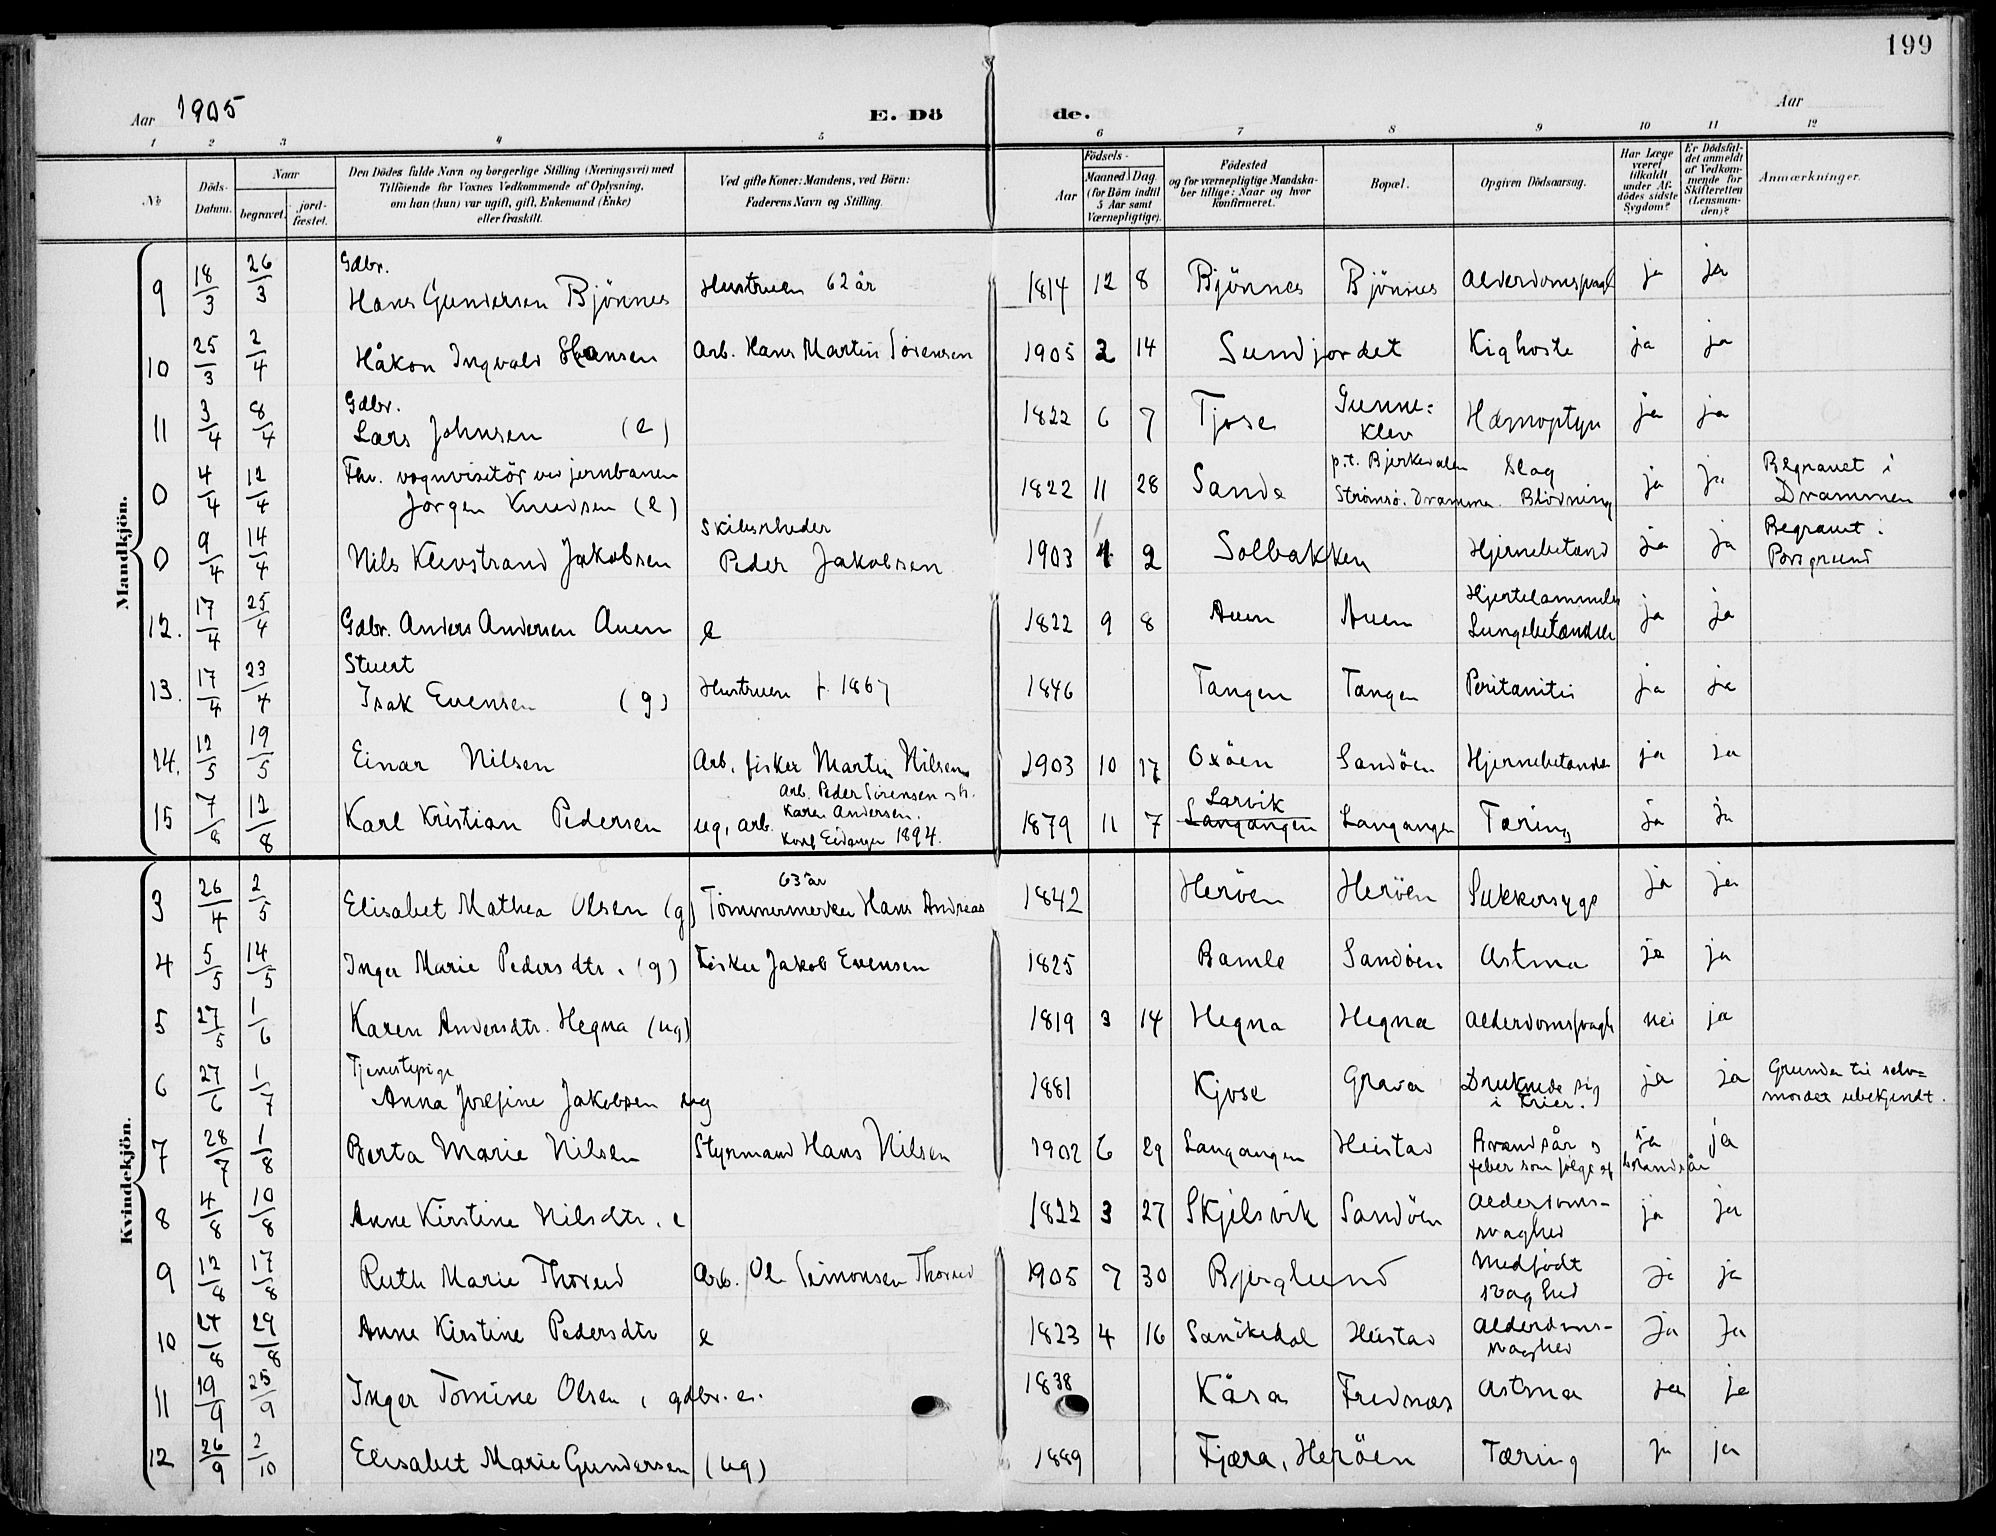 199
Aar 1905 E. Dö de. Aar
1 2 3 4 5 6 7 8 9 10 11 12
№ Döds-Datum. Naar begravet. jord-fæstet. Den Dödes fulde Navn og borgerlige Stilling (Næringsvei) med Tilföiende for Voxnes Vedkommende af Oplysning, om han (hun) var ugift, gift, Enkemand (Enke) eller fraskilt. Ved gifte Koner: Mandens, ved Börn: Faderens Navn og Stilling. Födsels- Aar Maaned Dag. (for Börn indtil 5 Aar samt Værnepligtige). Födested og for værnepligtige Mandskaber tillige: Naar og hvor konfirmeret. Bopæl. Opgiven Dödsaarsag. Har Læge været tilkaldt under Afdödes sidste Sygdom? Er Dödsfaldet anmeldt af Vedkommende for Skifteretten (Lensmanden)? Anmærkninger.
Mandkjön.
9 18/3 26/3 Gdbr. Hans Gundersen Bjönnes Hustruen 62 år 1814 12 8 Bjönnes Bjönnes Alderdomssvagh ja ja
10 25/3 2/4 Håkon Ingvald Hansen Arb. Hans Martin Sörensen 1905 2 14 Sundjordet Kighoste ja ja
11 3/4 8/4 Gdbr. Lars Johnsen (e) 1822 6 7 Tjose Gunneklev Hæmoptyn ja ja
0 4/4 12/4 Fhv. vognvisitör ved jernbanen Jörgen Knudsen (e) 1822 11 28 Sande p.t. Bjerkedalen Strömsö. Drammen. Slag Blödning ja ja Begravet i Drammen
0 9/4 14/4 Nils Klevstrand Jakobsen Skibsrheder Peder Jakobsen 1903 4 2 Solbakken Hjernebetænd ja ja Begravet i Porsgrund
12. 17/4 25/4 Gdbr. Anders Andersen Auen e 1822 9 8 Auen Auen Hjertelammelse Lungebetændelse ja ja
13. 17/4 23/4 Stuert Isak Evensen (g) Hustruen f. 1867 1846 Tangen Tangen Peritonitis ja ja
14. 12/5 19/5 Einar Nilsen Arb. fisker Martin Nilsen 1903 10 17 Oxöen Sandöen Hjernebetænde ja ja
15 7/8 12/8 Karl Kristian Pedersen ug, arb. Arb. Peder Sörensen o h. Karen Andersen. Konf Eidanger 1894. 1879 11 7 Larvik Langangen Langangen Tæring ja ja
Kvindekjön.
3 26/4 2/5 Elisabet Mathea Olsen (g) 63 år Tömmermerker Hans Andreas 1842 Heröen Heröen Sukkersyge ja ja
4 5/5 14/5 Inger Marie Pedersdtr. (g) Fisker Jakob Evensen 1825 Bamle Sandöen Astma ja ja
5 27/5 1/6 Karen Andersdtr. Hegna (ug) 1819 3 14 Hegna Hegna Alderdomssvagh nei ja
6 27/6 1/7 Tjenestepige Anna Josefine Jakobsen ug 1881 Kjose Grava Druknede sig i Erier. ja ja Grunden til selvmordet ubekjendt.
7 28/7 1/8 Berta Marie Nilsen Styrmand Hans Nilsen 1902 6 29 Langangen Heistad Brandsår o feber som følge af brandsår ja ja
8 4/8 10/8 Anne Kirstine Nilsdtr. e 1822 3 27 Skjelsvik Sandöen Alderdomssvaghed ja ja
9 12/8 17/8 Ruth Marie Thorud Arb. Ole Simonsen Thorud 1905 7 30 Bjerglund Medfödt svaghed ja ja
10 24/8 29/8 Anne Kirstine Pedersdtr e 1823 4 16 Sanökedal Heistad Alderdomssvaghed ja ja
11 19/9 25/9 Inger Tomine Olsen, gdbr. e. 1838 Kåsa Frednæs Astma ja ja
12 26/9 2/10 Elisabet Marie Gundersen (ug) 1889 Fjæra, Heröen Tæring ja ja